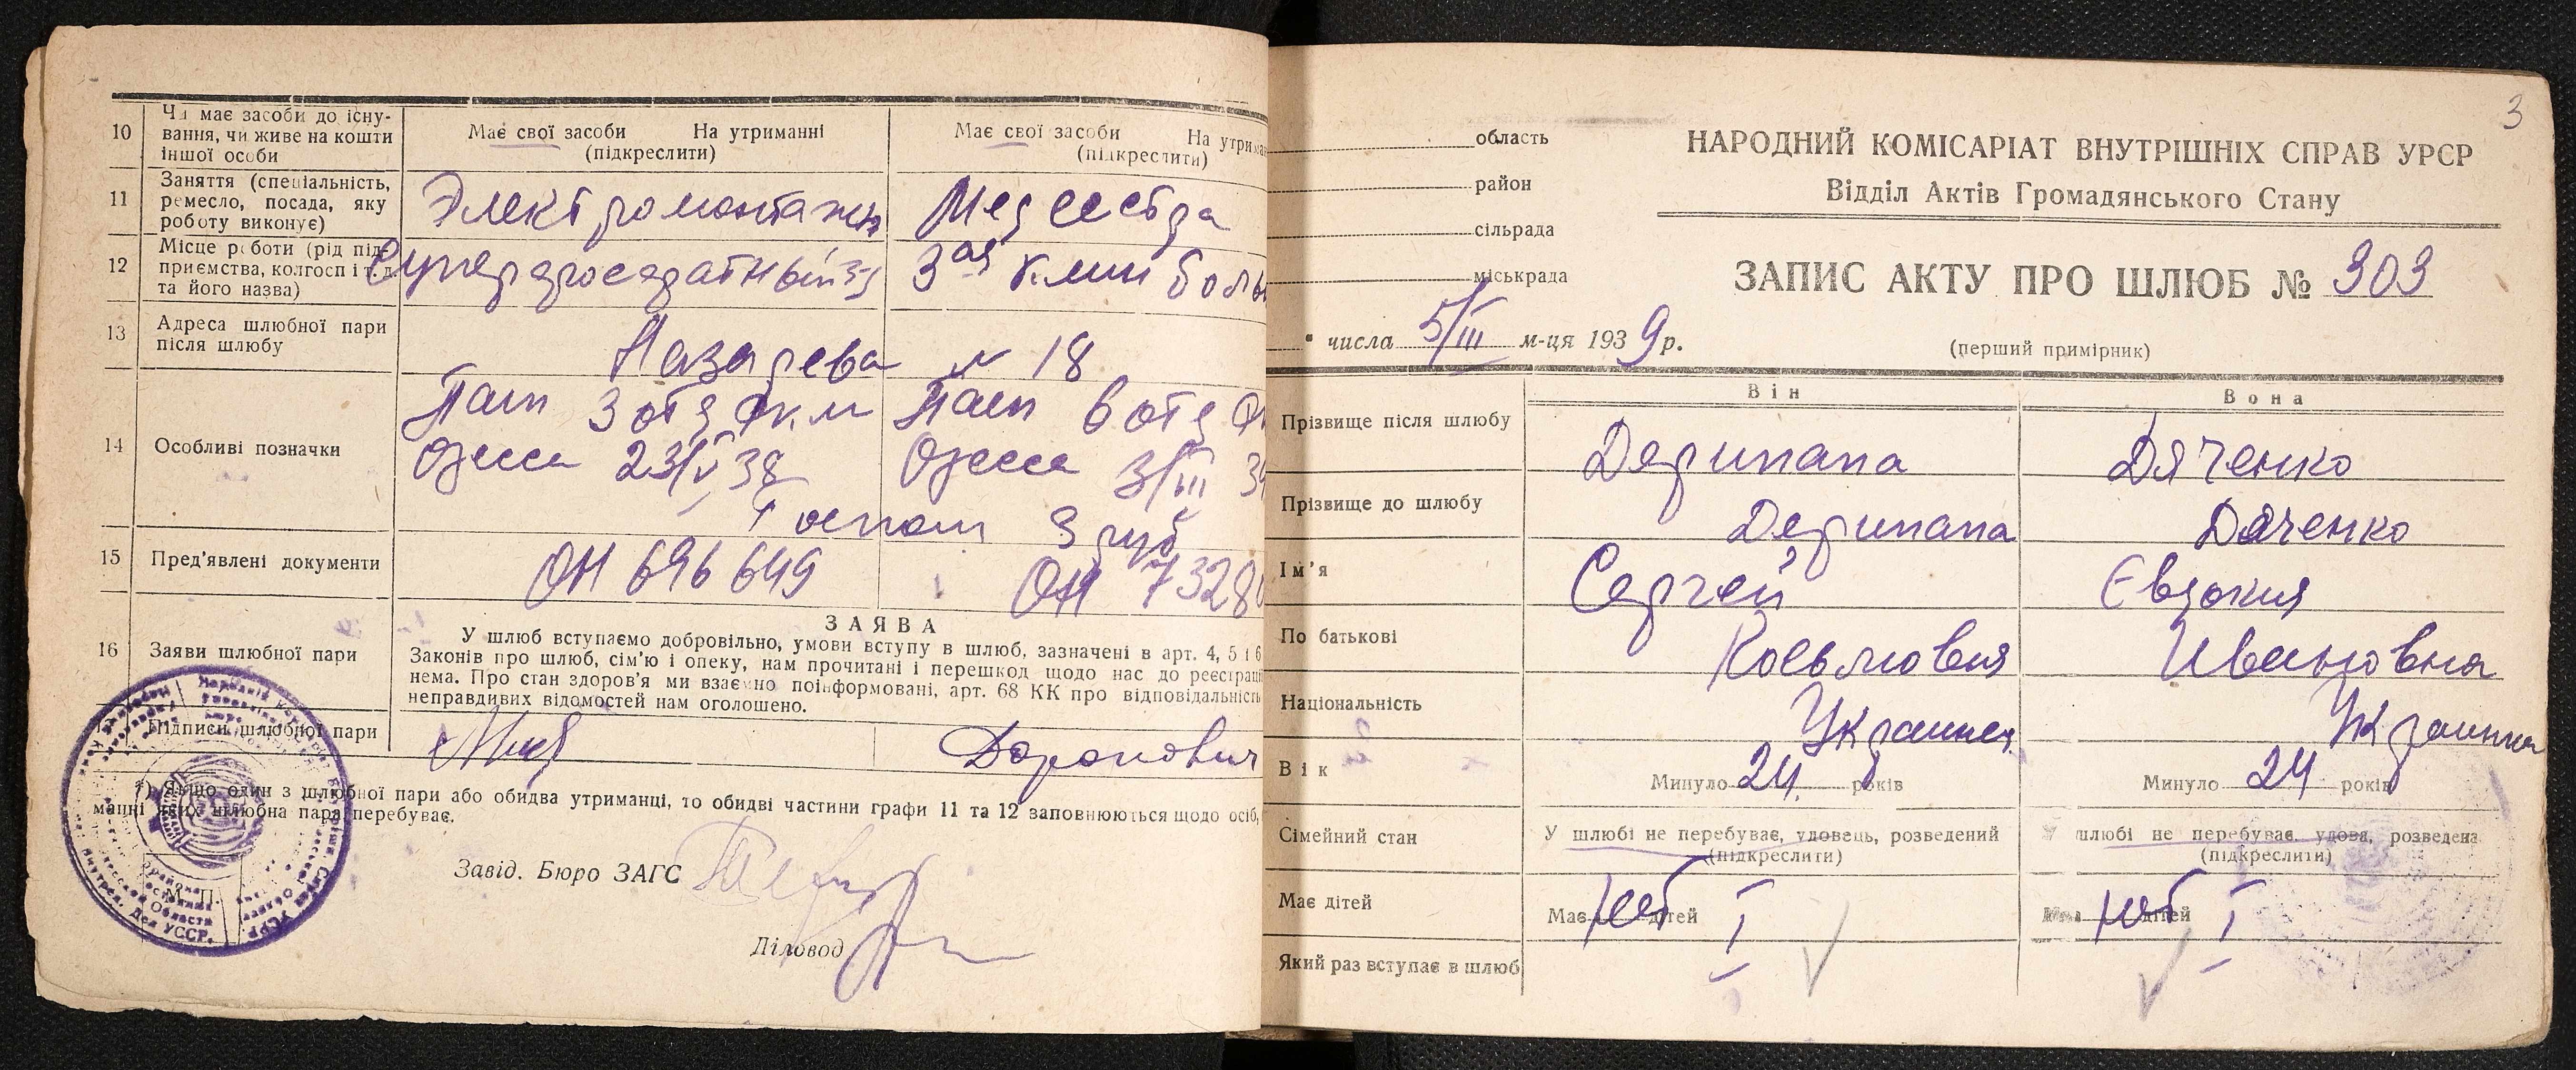 10
Чи має засоби до існу-
вання, чи живе на кошти
іншої особи
Має свої засоби На утриманні
(підкреслити)
Має свої засоби На утрима
(підкреслити)
11
Заняття (спеціальність,
ремесло, посада, яку
роботу виконує)
Электромонтажн
Медсестра
12
Місце роботи (рід під-
приємства, колгосп і т. д.
та його назва)
3ая клин боль
13
Адреса шлюбної пари
після шлюбу
Лазарева № 18
14
Особливі позначки
Пасп 3 отд
Одесса 23/V 38
Пасп 6 отд
Одесса 3/III 39
Госпош 3 руб
15
Пред'явлені документи
ОН 696649
ОН 7328
16
Заяви шлюбної пари
ЗАЯВА
У шлюб вступаємо добровільно, умови вступу в шлюб, зазначені в арт. 4, 5 і 6
Законів про шлюб, сім'ю і опеку, нам прочитані і перешкод щодо нас до реєстрац
нема. Про стан здоров'я ми взаємно поінформовані, арт. 68 КК про відповідальність
неправдивих відомостей нам оголошено.
Підписи шлюбної пари
*) Якщо один з шлюбної пари або обидва утриманці, то обидві частини графи 11 та 12 заповнюються щодо осіб,
манні яких шлюбна пара перебуває.
Завід. Бюро ЗАГС
М. П.
Діловод
3
область
район
сільрада
міськрада
НАРОДНИЙ КОМІСАРІАТ ВНУТРІШНІХ СПРАВ УРСР
Відділ Актів Громадянського Стану
ЗАПИС АКТУ ПРО ШЛЮБ № 303
" числа 5/III м-ця 1939 р.
(перший примірник)
Він
Вона
Прізвище після шлюбу
Дерипапа
Дяченко
Прізвище до шлюбу
Дерипапа
Дяченко
Ім'я
Сергей
Євдокия
По батькові
Косьмович
Ивановна
Національність
Украинец
Украинка
Вік
Минуло 24 років
Минуло 24 років
Сімейний стан
У шлюбі не перебуває, удовець, розведений
(підкреслити)
У шлюбі не перебуває, удова, розведена
(підкреслити)
Має дітей
Має нет дітей
Має нет дітей
Який раз вступає в шлюб
I
I